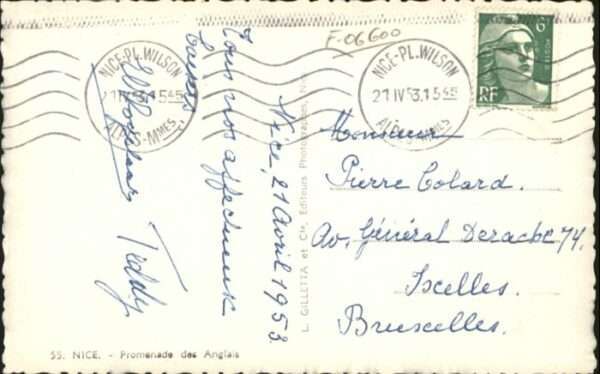 F-06600
NICE-PL. WILSON
21 IV 53. 15 45
ALPES-MMES
NICE-PL. WILSON
21 IV 53. 15 45
ALPES-MMES
6
RF
Nice, 21 Avril 1953
Tous nos affectueux
Teddy
L. GILLETTA et Cie, Editeurs Photographes, Nice
Monsieur
Pierre Colard.
Av. Général Derache 74.
Ixelles.
Bruxelles.
55. NICE. - Promenade des Anglais